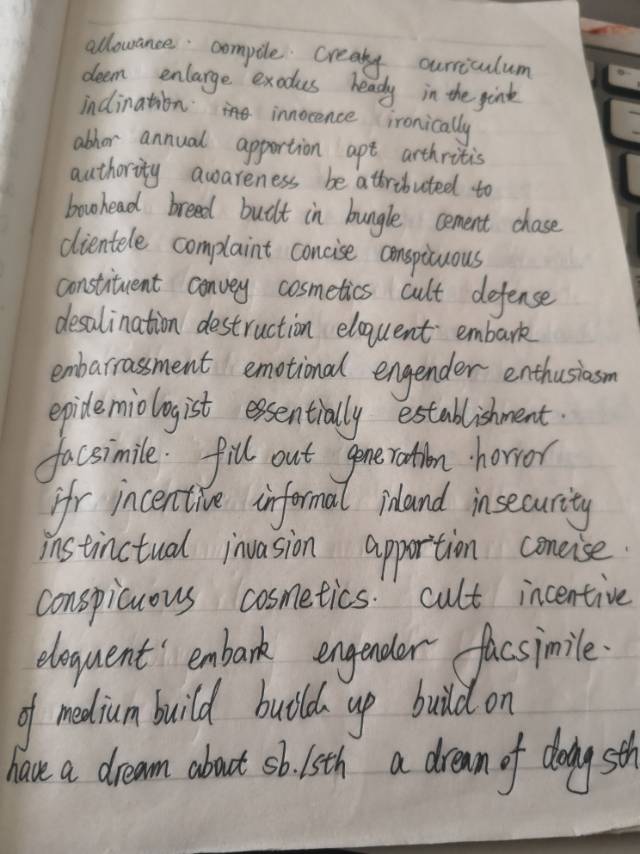 allowance. compile. creaky curriculum
deem enlarge exodus heady in the pink
inclination innocence ironically
abhor annual apportion apt arthritis
authority awareness be attributed to
bowhead breed built in bungle cement chase
clientele complaint concise conspicuous
constituent convey cosmetics cult defense
desalination destruction eloquent embark
embarrassment emotional engender enthusiasm
epidemiologist essentially establishment.
facsimile. fill out generation. horror
ifr incentive informal inland insecurity
instinctual invasion apportion concise.
conspicuous cosmetics. cult incentive
eloquent embark engender facsimile.
of medium build build up build on
have a dream about sb./sth a dream of doing sth